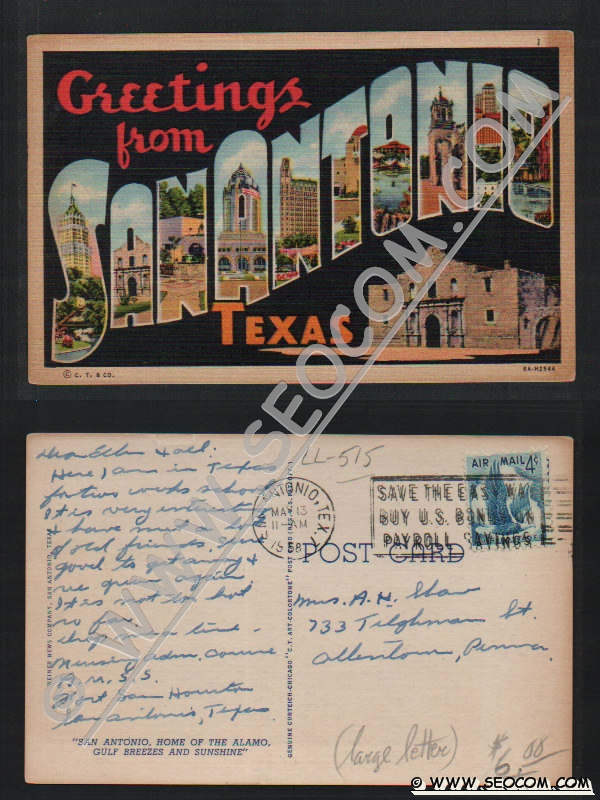 1
Greetings
from
SAN ANTONIO
TEXAS
© C. T. & CO.
6A-H2544
© WWW.SEOCOM.COM
LL-515
AIR MAIL 4¢
SAN ANTONIO, TEX.
MAY 13
11 AM
1948
SAVE THE EASY WAY
BUY U.S. BONDS ON
PAYROLL SAVINGS
POST CARD
Dear Ellen & all.
Here I am in Texas
for two weeks
It is very
& have much
good friends.
good to get away &
see green again
It is not too hot
so far.
drop me a line -
Fort Sam Houston
San Antonio, Texas
Mrs. A. H. Shaw
733 Tilghman St.
Allentown, Penna.
NEWS COMPANY, SAN ANTONIO, TEXAS
GENUINE CURTEICH-CHICAGO "C.T. ART-COLORTONE" POST CARD (REG. U.S. PAT. OFF.)
"SAN ANTONIO, HOME OF THE ALAMO,
GULF BREEZES AND SUNSHINE"
(large letter)
$6.00
© WWW.SEOCOM.COM